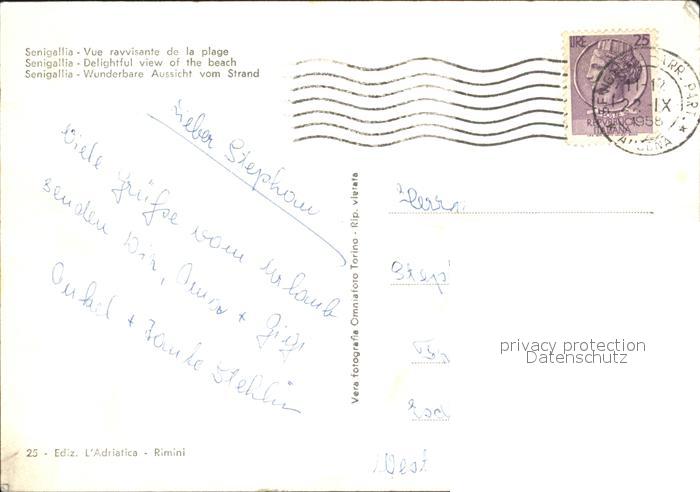 Senigallia - Vue ravvisante de la plage
Senigallia - Delightful view of the beach
Senigallia - Wunderbare Aussicht vom Strand
LIRE 25
22-IX
1958
REPUBBLICA
ITALIANA
Lieber Stephan
Viele Grüße vom Urlaub
senden Dir,
Onkel + Tante
Vera fotografia Omniafoto Torino - Rip. vietata
Herrn
Step
West
privacy protection
Datenschutz
25 - Ediz. L'Adriatica - Rimini